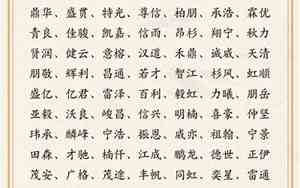 鼎华 盛贯 特光 尊信 柏朋 承浩 霖优
青良 佳骏 凯嘉 信雨 昂杉 翔宁 秋力
贤润 健云 意榕 汉道 禾鼎 诚威 天清
朋敬 辉利 昌通 若才 智江 杉风 虹顺
盛亿 亿君 雷泽 百利 毅虹 力曦 朋岳
亚毅 沃良 峻昌 信兴 明楠 喜豪 仲坚
玮承 麟峰 宁浩 振恩 威亦 祖翰 宁景
田森 才驰 楠仟 江成 鹏龙 德世 正伊
茂安 广格 茂途 丰帆 同虹 奕星 雷通